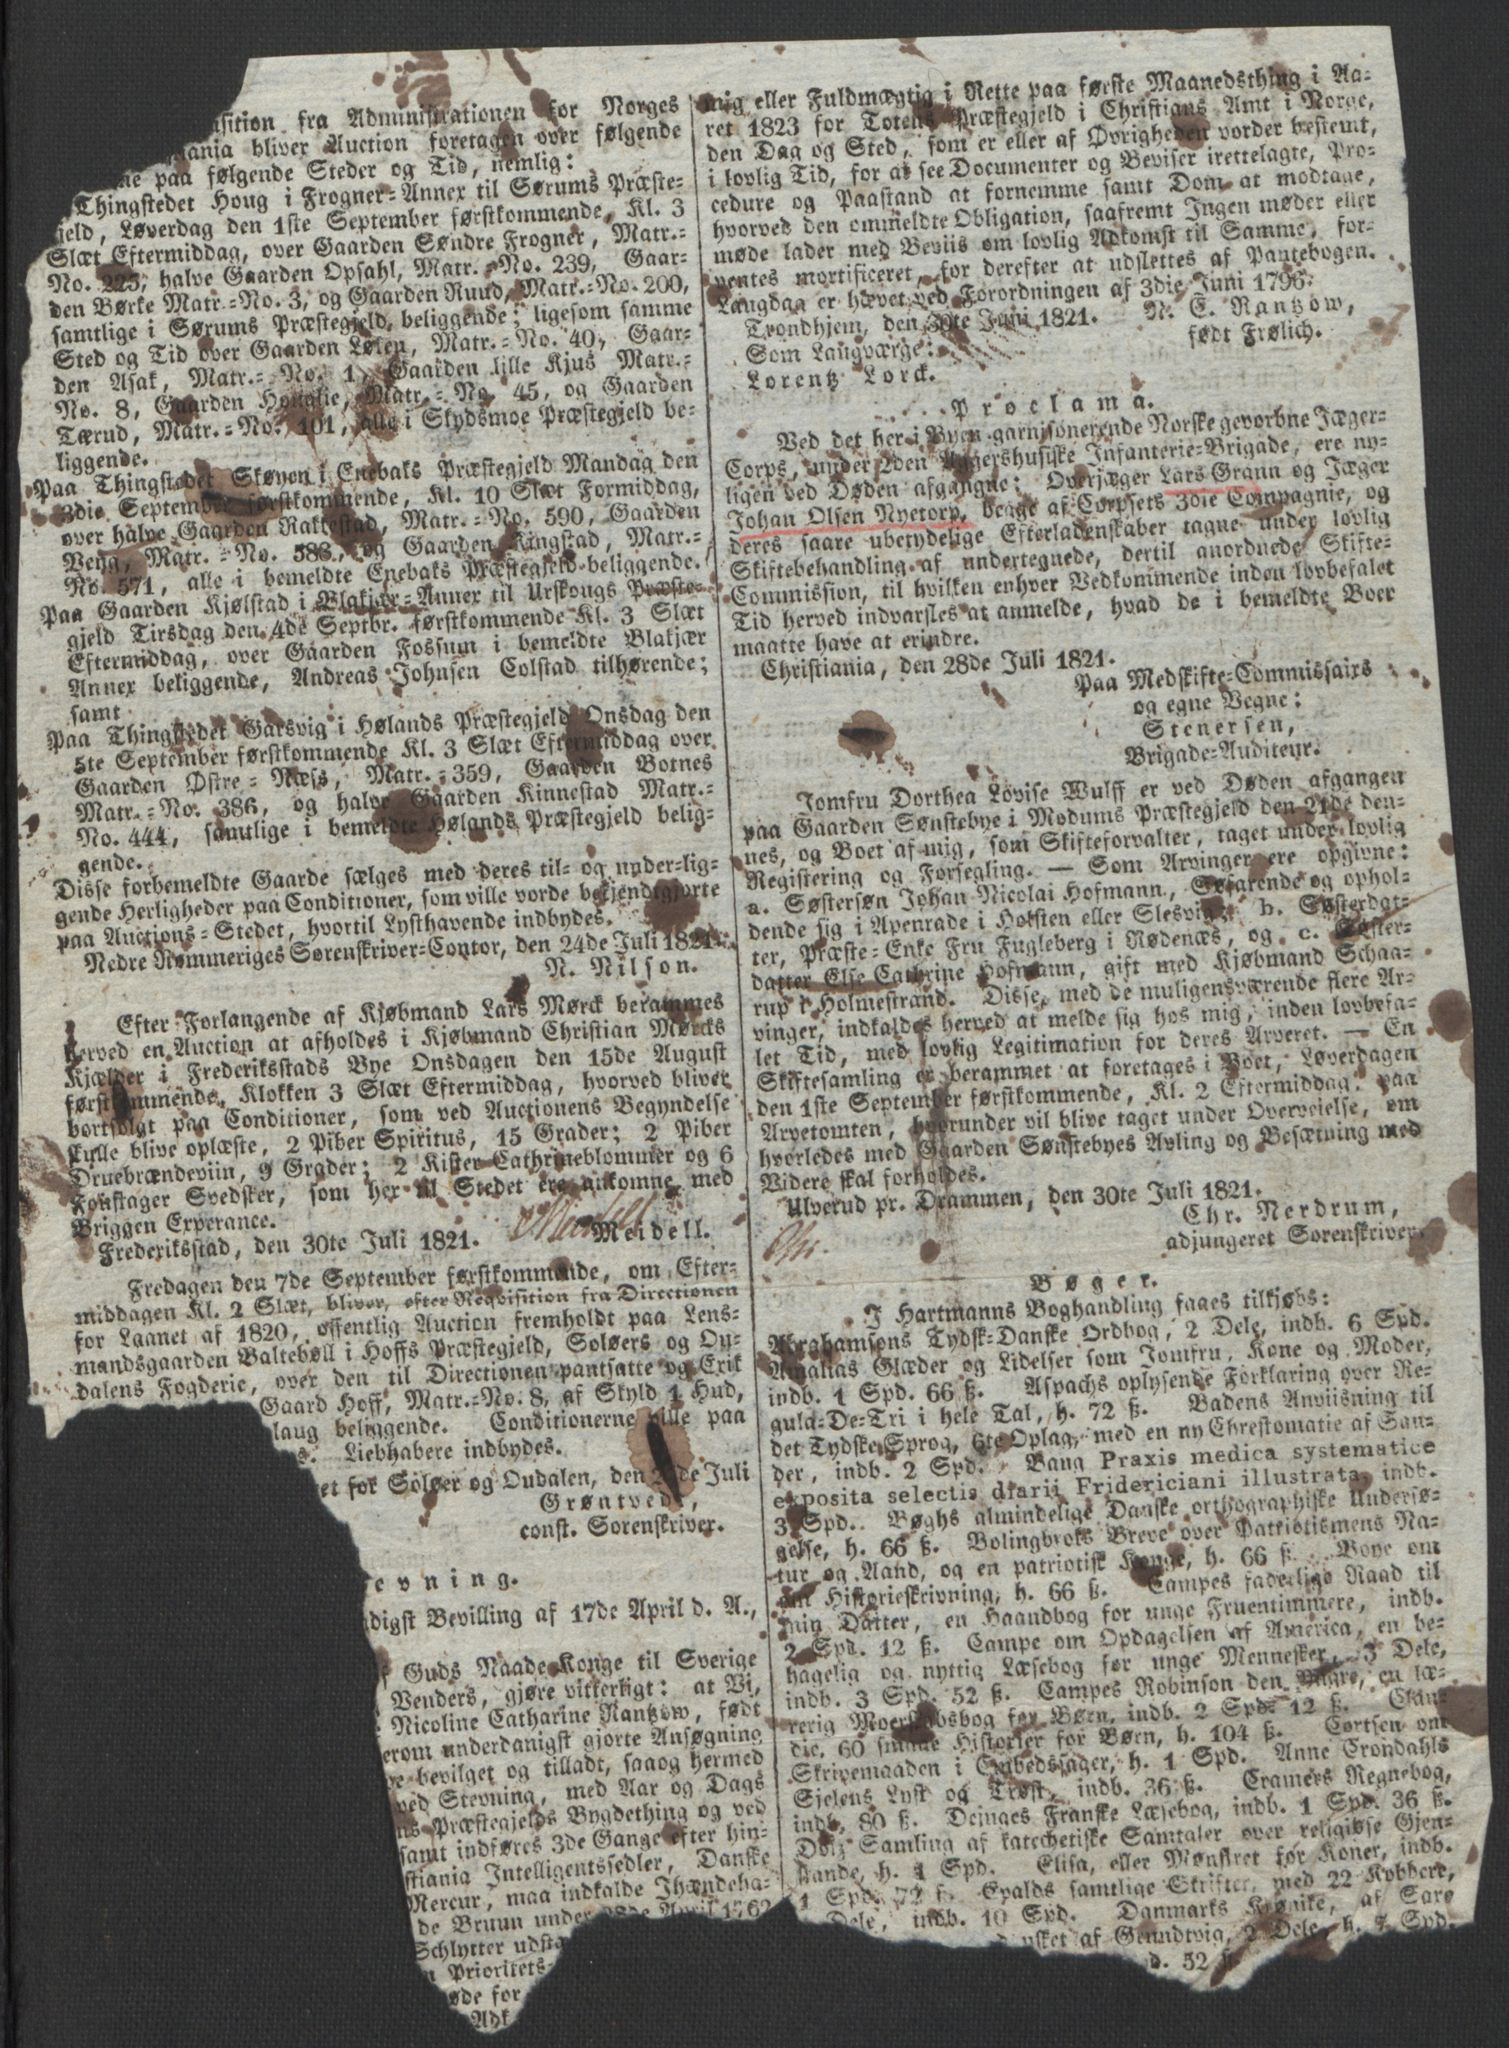 sition fra Administrationen for Norges
ania bliver Auction foretagen over følgende
ne paa følgende Steder og Tid, nemlig:
Thingstedet Houg i Frogner-Annex til Sørums Præste-
jeld, Løverdag den 1ste September førstkommende, Kl. 3
Slæt Eftermiddag, over Gaarden Søndre Frogner, Matr.-
No. 225, halve Gaarden Opsahl, Matr.-No. 239, Gaar-
den Børke Matr.-No. 3, og Gaarden Ruud, Matr.-No. 200,
samtlige i Sørums Præstegjeld beliggende; ligesom samme
Sted og Tid over Gaarden Løken, Matr.-No. 40, Gaar-
den Asak, Matr.-No. 1, Gaarden lille Kjus Matr.-
No. 8, Gaarden Matr.-No. 45, og Gaarden
Tærud, Matr.-No. 101, alle i Skydsmoe Præstegjeld be-
liggende.
Paa Thingstedet Skøyen i Enebaks Præstegjeld Mandag den
3die September førstkommende, Kl. 10 Slæt Formiddag,
over halve Gaarden Rakkestad, Matr.-No. 590, Gaarden
Veng, Matr.-No. 586, og Gaarden Ringstad, Matr.-
No. 571, alle i bemeldte Enebaks Præstegjeld beliggende.
Paa Gaarden Kjølstad i Blakjær-Annex til Urskougs Præste-
gjeld Tirsdag den 4de Septbr. førstkommende Kl. 3 Slæt
Eftermiddag, over Gaarden Fossum i bemeldte Blakjær
Annex beliggende, Andreas Johnsen Colstad tilhørende;
samt
Paa Thingstedet Garsvig i Hølands Præstegjeld Onsdag den
5te September førstkommende Kl. 3 Slæt Eftermiddag over
Gaarden Østre-Næss, Matr.-359, Gaarden Botnes
Matr.-No. 386, og halve Gaarden Kinnestad Matr.-
No. 444, samtlige i bemeldte Hølands Præstegjeld belig-
gende.
Disse forbemeldte Gaarde sælges med deres til- og under-lig-
gende Herligheder paa Conditioner, som ville vorde bekjendtgjorte
paa Auctions-Stedet, hvortil Lysthavende indbydes.
Nedre Rommeriges Sorenskriver-Contor, den 24de Juli 1821.
N. Nilson.
Efter Forlangende af Kjøbmand Lars Mørck berammes
herved en Auction at afholdes i Kjøbmand Christian Mørcks
Kjælder i Frederiksstads Bye Onsdagen den 15de August
førstkommende, Klokken 3 Slæt Eftermiddag, hvorved bliver
bortsolgt paa Conditioner, som ved Auctionens Begyndelse
skulle blive oplæste, 2 Piber Spiritus, 15 Grader; 2 Piber
Druebrændeviin, 9 Grader; 2 Kister Cathrineblommer og 6
Foustager Svedsker, som her til Stedet ere ankomne med
Briggen Experance.
Frederiksstad, den 30te Juli 1821. Meidell.
Fredagen den 7de September førstkommende, om Efter-
middagen Kl. 2 Slæt, bliver, efter Reqvisition fra Directionen
for Laanet af 1820, offentlig Auction fremholdt paa Lens-
mandsgaarden Baltebøll i Hoffs Præstegjeld, Soløers og Ou-
dalens Fogderie, over den til Directionen pantsatte og Erik
Gaard Hoff, Matr.-No. 8, af Skyld 1 Hud,
laug beliggende. Conditionerne ville paa
s. Liebhabere indbydes.
et for Soløer og Oudalen, den de Juli
Grøntvedt,
const. Sorenskriver.
evning.
digst Bevilling af 17de April d. A.,
f Guds Naade Konge til Sverige
Venders, gjøre vitterligt: at Vi,
Nicoline Catharine Rantzow, født
erom underdanigst gjorte Ansøgning
ve bevilget og tilladt, saaog hermed
ved Stevning, med Aar og Dags
ns Præstegjelds Bygdething og ved
samt indføres 3de Gange efter hin-
stiania Intelligentssedler, Danske
Mercur, maa indkalde Ihændeha-
de Bruun under 28de April 1762
Schlytter udsta
n Prioritets-
øde for
Adk
mig eller Fuldmægtig i Rette paa første Maanedsthing i Aa-
ret 1823 for Totens Præstegjeld i Christians Amt i Norge,
den Dag og Sted, som er eller af Øvrigheden vorder bestemt,
i lovlig Tid, for at see Documenter og Beviser irettelagte, Pro-
cedure og Paastand at fornemme samt Dom at modtage,
hvorved den ommeldte Obligation, saafremt Ingen møder eller
møde lader med Beviis om lovlig Adkomst til Samme, for-
ventes mortificeret, for derefter at udslettes af Pantebogen.
Laugdag er hævet ved Forordningen af 3die Juni 1796.
Trondhjem, den 30te Juni 1821. N. C. Rantzow,
Som Laugværge: født Frølich.
Lorentz Lorck.
Proclama.
Ved det her i Byen garnisonerende Norske gevorbne Jæger-
Corps, under 2den Aggershusiske Infanterie-Brigade, ere ny-
ligen ved Døden afgangne: Overjæger Lars Grann og Jæger
Johan Olsen Nyetorp, begge af Corpsets 3die Compagnie, og
deres saare ubetydelige Efterladenskaber tagne under lovlig
Skiftebehandling af undertegnede, dertil anordnede Skifte-
Commission, til hvilken enhver Vedkommende inden lovbefalet
Tid herved indvarsles at anmelde, hvad de i bemeldte Boer
maatte have at erindre.
Christiania, den 28de Juli 1821.
Paa Medskifte-Commissairs
og egne Vegne:
Stenersen,
Brigade-Auditeur.
Jomfru Dorthea Lovise Wulff er ved Døden afgangen
paa Gaarden Sønstebye i Modums Præstegjeld den 21de den-
nes, og Boet af mig, som Skifteforvalter, taget under lovlig
Registering og Forsegling. — Som Arvinger ere opgivne:
a. Søstersøn Johan Nicolai Hofmann, Søfarende og ophol-
dende sig i Apenrade i Holsten eller Slesvig; b. Søsterdat-
ter, Præste-Enke Fru Fugleberg i Rødenæs, og c. Søster-
datter Else Cathrine Hofmann, gift med Kjøbmand Schaa-
rup i Holmestrand. Disse, med de muligens værende flere Ar-
vinger, indkaldes herved at melde sig hos mig, inden lovbefa-
let Tid, med lovlig Legitimation for deres Arveret. — En
Skiftesamling er berammet at foretages i Boet, Løverdagen
den 1ste September førstkommende, Kl. 2 Eftermiddag, paa
Arvetomten, hvorunder vil blive taget under Overveielse, om
hvorledes med Gaarden Sønstebyes Avling og Besætning med
Videre skal forholdes.
Ulverud pr. Drammen, den 30te Juli 1821.
Chr. Nerdrum,
adjungeret Sorenskriver.
Bøger.
I Hartmanns Boghandling faaes tilkjøbs:
Abrahamsons Tydsk-Danske Ordbog, 2 Dele, indb. 6 Spd.
Amalias Glæder og Lidelser som Jomfru, Kone og Moder,
indb. 1 Spd. 66 ß. Aspachs oplysende Forklaring over Re-
gula-De-Tri i hele Tal, h. 72 ß. Badens Anviisning til
det Tydske Sprog, 6te Oplag, med en ny Chrestomatie af San-
der, indb. 2 Spd. Bang Praxis medica systematice
exposita selectis diarii Fridericiani illustrata, indb.
3 Spd. Bøghs almindelige Danske orthographiske Undersø-
gelse, h. 66 ß. Bolingbroks Breve over Patriotismens Na-
tur og Aand, og en patriotisk Konge, h. 66 ß. Boye om
om Historieskrivning, h. 66 ß. Campes faderlige Raad til
min Datter, en Haandbog for unge Fruentimmere, indb.
2 Spd. 12 ß. Campe om Opdagelsen af America, en be-
hagelig og nyttig Læsebog for unge Mennesker, 3 Dele,
indb. 3 Spd. 52 ß. Campes Robinson den Yngre, en læ-
rerig Moerskabsbog for Børn, indb. 2 Spd. 12 ß. Clau-
die, 60 smaae Historier for Børn, h. 104 ß. Cortsen om
Skrivemaaden i Embedssager, h. 1 Spd. Anne Crondahls
Sjelens Lyst og Trøst, indb. 36 ß. Cramers Regnebog,
indb. 80 ß. Deinges Franske Læsebog, indb. 1 Spd. 36 ß.
Dolz Samling af katechetiske Samtaler over religiøse Gjen-
stande, h. 1 Spd. Elisa, eller Mønstret for Koner, indb.
1 Spd. 72 ß. Evalds samtlige Skrifter, med 22 Kobbere,
Dele, indb. 10 Spd. Danmarks Krønike, af Saxo
vsket af Grundtvig, 2 Dele, h. Spd.
d. 52 ß